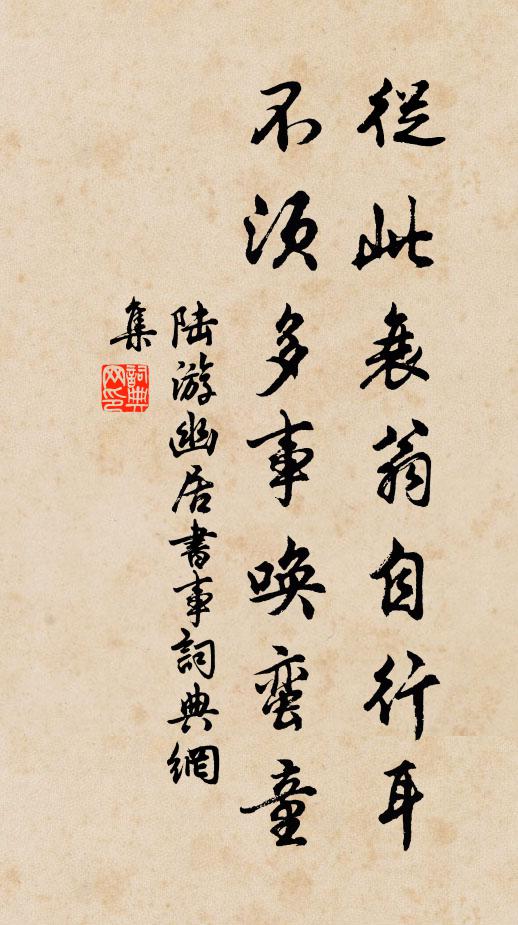 從此衰翁自行耳
不須多事喚蛮童
陸游幽居書事詞典網
集
詞典
网印